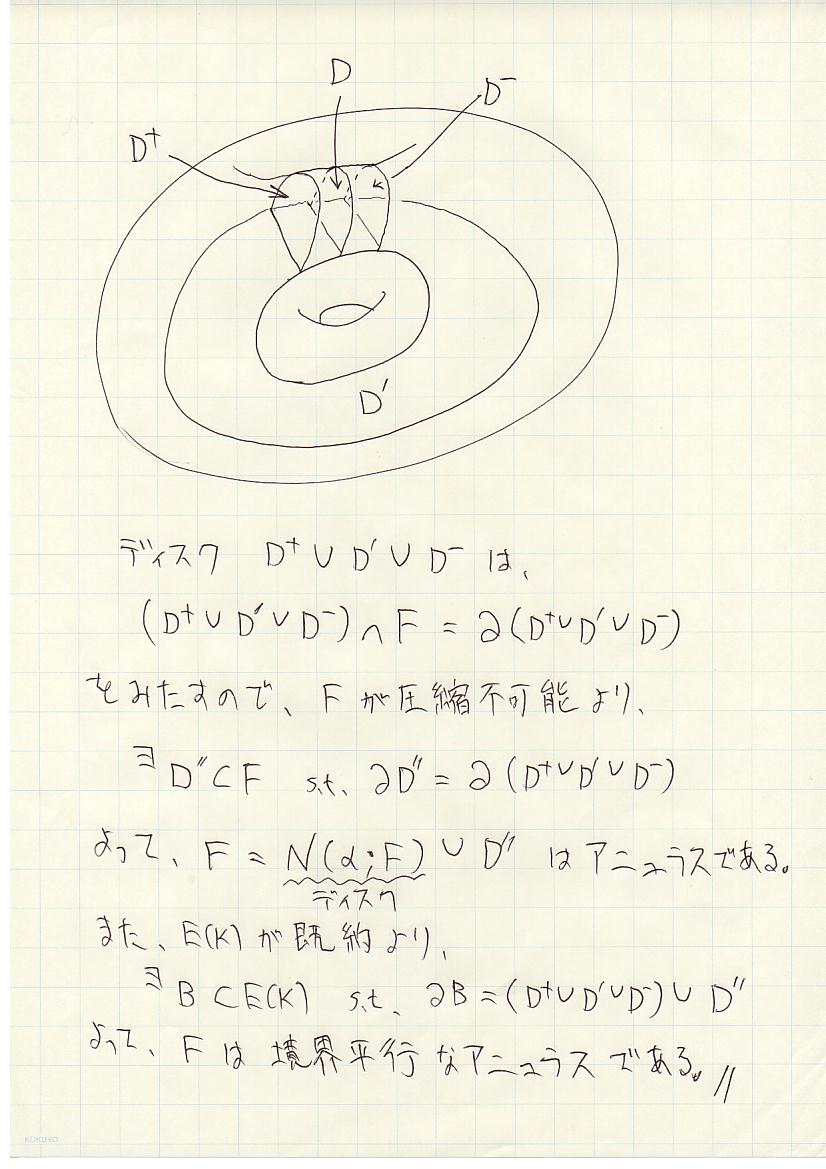 D
D⁻
D⁺
D′
ディスク D⁺ ∪ D′ ∪ D⁻ は、
(D⁺ ∪ D′ ∪ D⁻) ∩ F = ∂(D⁺∪D′∪D⁻)
をみたすので、F が圧縮不可能より、
∃D″⊂F s.t. ∂D″ = ∂(D⁺∪D′∪D⁻)
よって、F = N(α;F) ∪ D″ はアニュラスである。
ディスク
また、E(K)が既約より、
∃B⊂E(K) s.t. ∂B=(D⁺∪D′∪D⁻)∪ D″
よって、F は境界平行なアニュラスである。//
KOKUYO